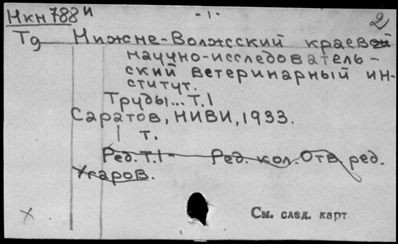 Нкн788и - 1 - 2
Тд Нижне-Волжсский краевой
научно-исследователь-
ский ветеринарный ин-
ститут.
Труды... Т.1
Саратов, НИВИ, 1933.
1 т.
Ред. Т.1 - Ред. кол. Отв. ред.
Ужаров.
См. след. карт